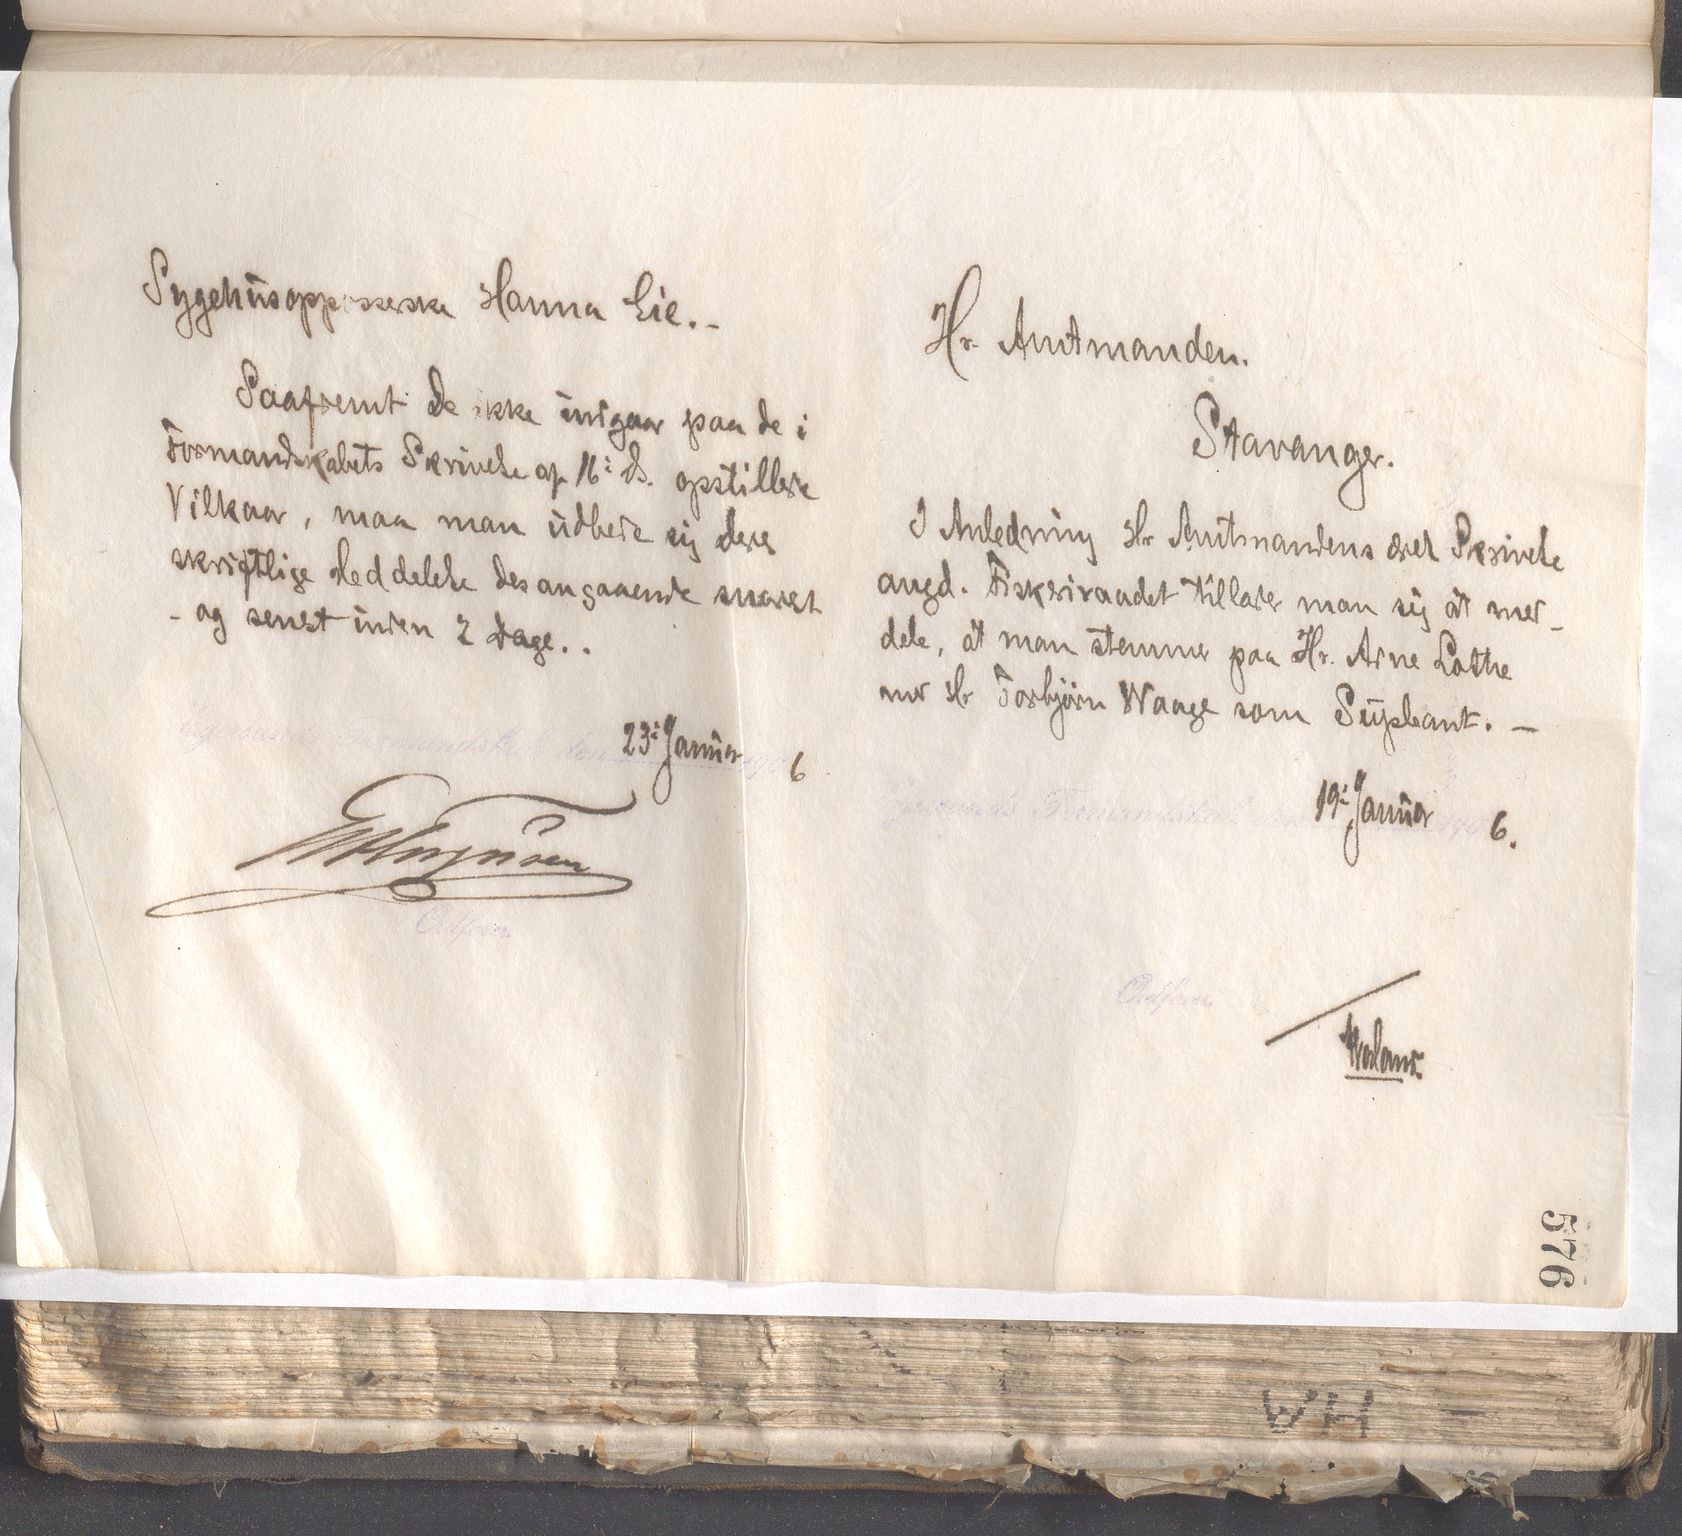 Sygehusopp sserske Hanna Lie. -
Saafremt De ikke indgaar paa de i
Formandskabets Skrivelse af 16: ds. opstillede
Vilkaar, maa man udbede sig deres
skriftlige Meddelelse desangaaende snarest
- og senest inden 2 dage. .
Egersunds Formandskab den 23: Januar 1906
Ordfører
Hr. Amtmanden.
Stavanger.
I Anledning Hr Amtmandens ærede Skrivelse
angd. Fiskeriraadet tillader man sig at med-
dele, at man stemmer paa Hr. Arne Lothe
med Hr Torbjørn Waage som Supleant. -
Egersunds Formandskab den 19: Januar 1906.
Ordfører
576
WH